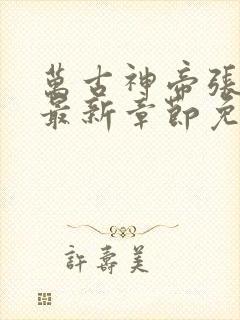 萬古神帝張
最新章節免
許壽美